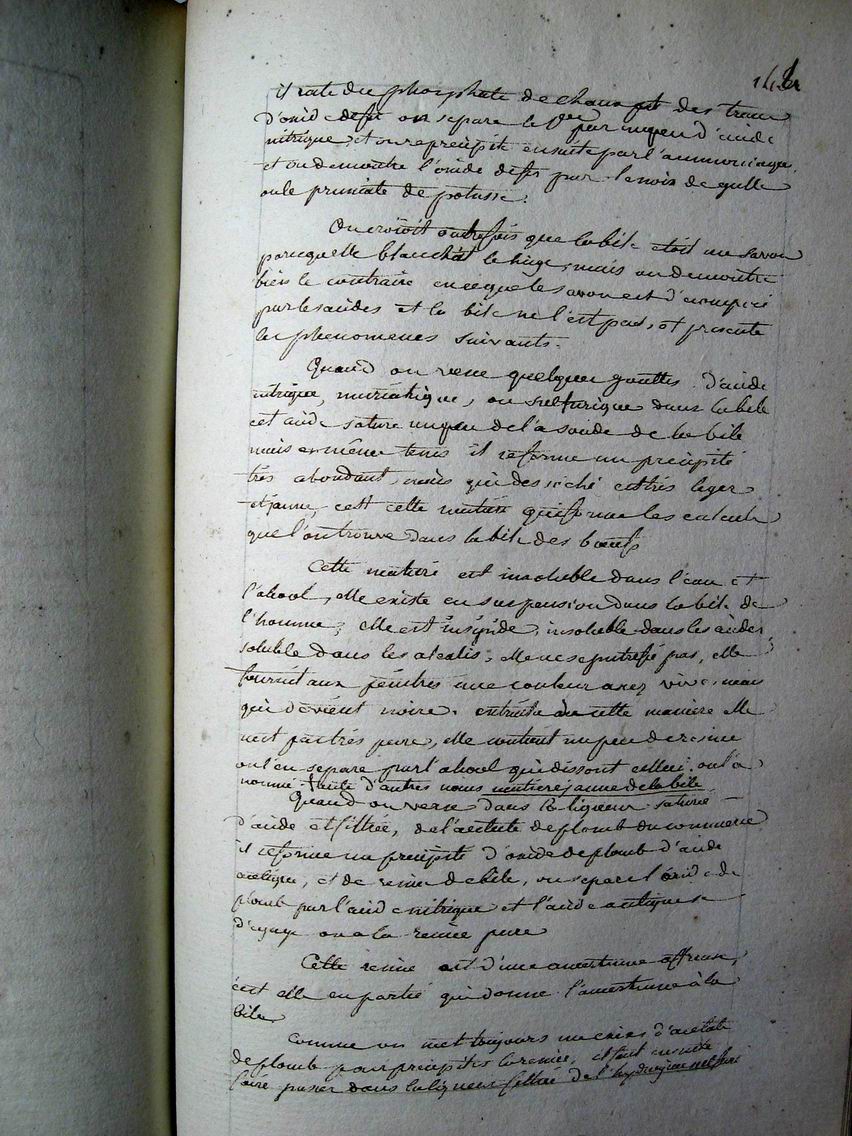 il reste du phosphate de chaux et des traces
d'oxide de fer on separe le 1er par un peu d'acide
nitrique, et on reprecipite ensuite par l'ammoniaque,
et on demontre l'oxide de fer par la noix de galle
ou le prussiate de potasse.
On croioit autrefois que la bile etoit un savon
parcequ'elle blanchit le linge, mais on demontre
bien le contraire en ce que le savon est decomposé
par les acides et la bile ne l'est pas, et presente
les phenomenes suivants.
Quand on verse quelques gouttes d'acide
nitrique, muriatique, ou sulfurique dans la bile
cet acide sature un peu de la soude de la bile
mais en même tems il se forme un precipité
très abondant, mais qui desseché est très leger
et jaune, c'est cette matière qui forme les calculs
que l'on trouve dans la bile des bœufs
Cette matiere est insoluble dans l'eau et
l'alcool, elle existe en suspension dans la bile de
l'homme; elle est insipide, insoluble dans les acides
soluble dans les alcalis; elle ne se putrefie pas, elle
fournit aux peintres une couleur assez vive, mais
qui devient noire. extraite de cette maniere elle
n'est pas très pure, elle contient un peu de resine
on l'en separe par l'alcool qui dissout celle ci. on l'a
nommé faute d'autres noms matiere jaune de la bile
Quand on verse dans la liqueur saturée
d'acide et filtrée, de l'acetate de plomb du commerce
il se forme un precipité d'oxide de plomb d'acide
acetique, et de resine de bile, on separe l'oxide de
plomb par l'acide nitrique et l'acide acetique se
degage on a la resine pure
Cette resine est d'une amertume affreuse,
c'est elle en partie qui donne l'amertume à la
bile
Comme on met toujours un exces d'acetate
de plomb pour precipiter la resine, il faut ensuite
faire passer dans la liqueur filtrée de l'hydrogene sulfuré